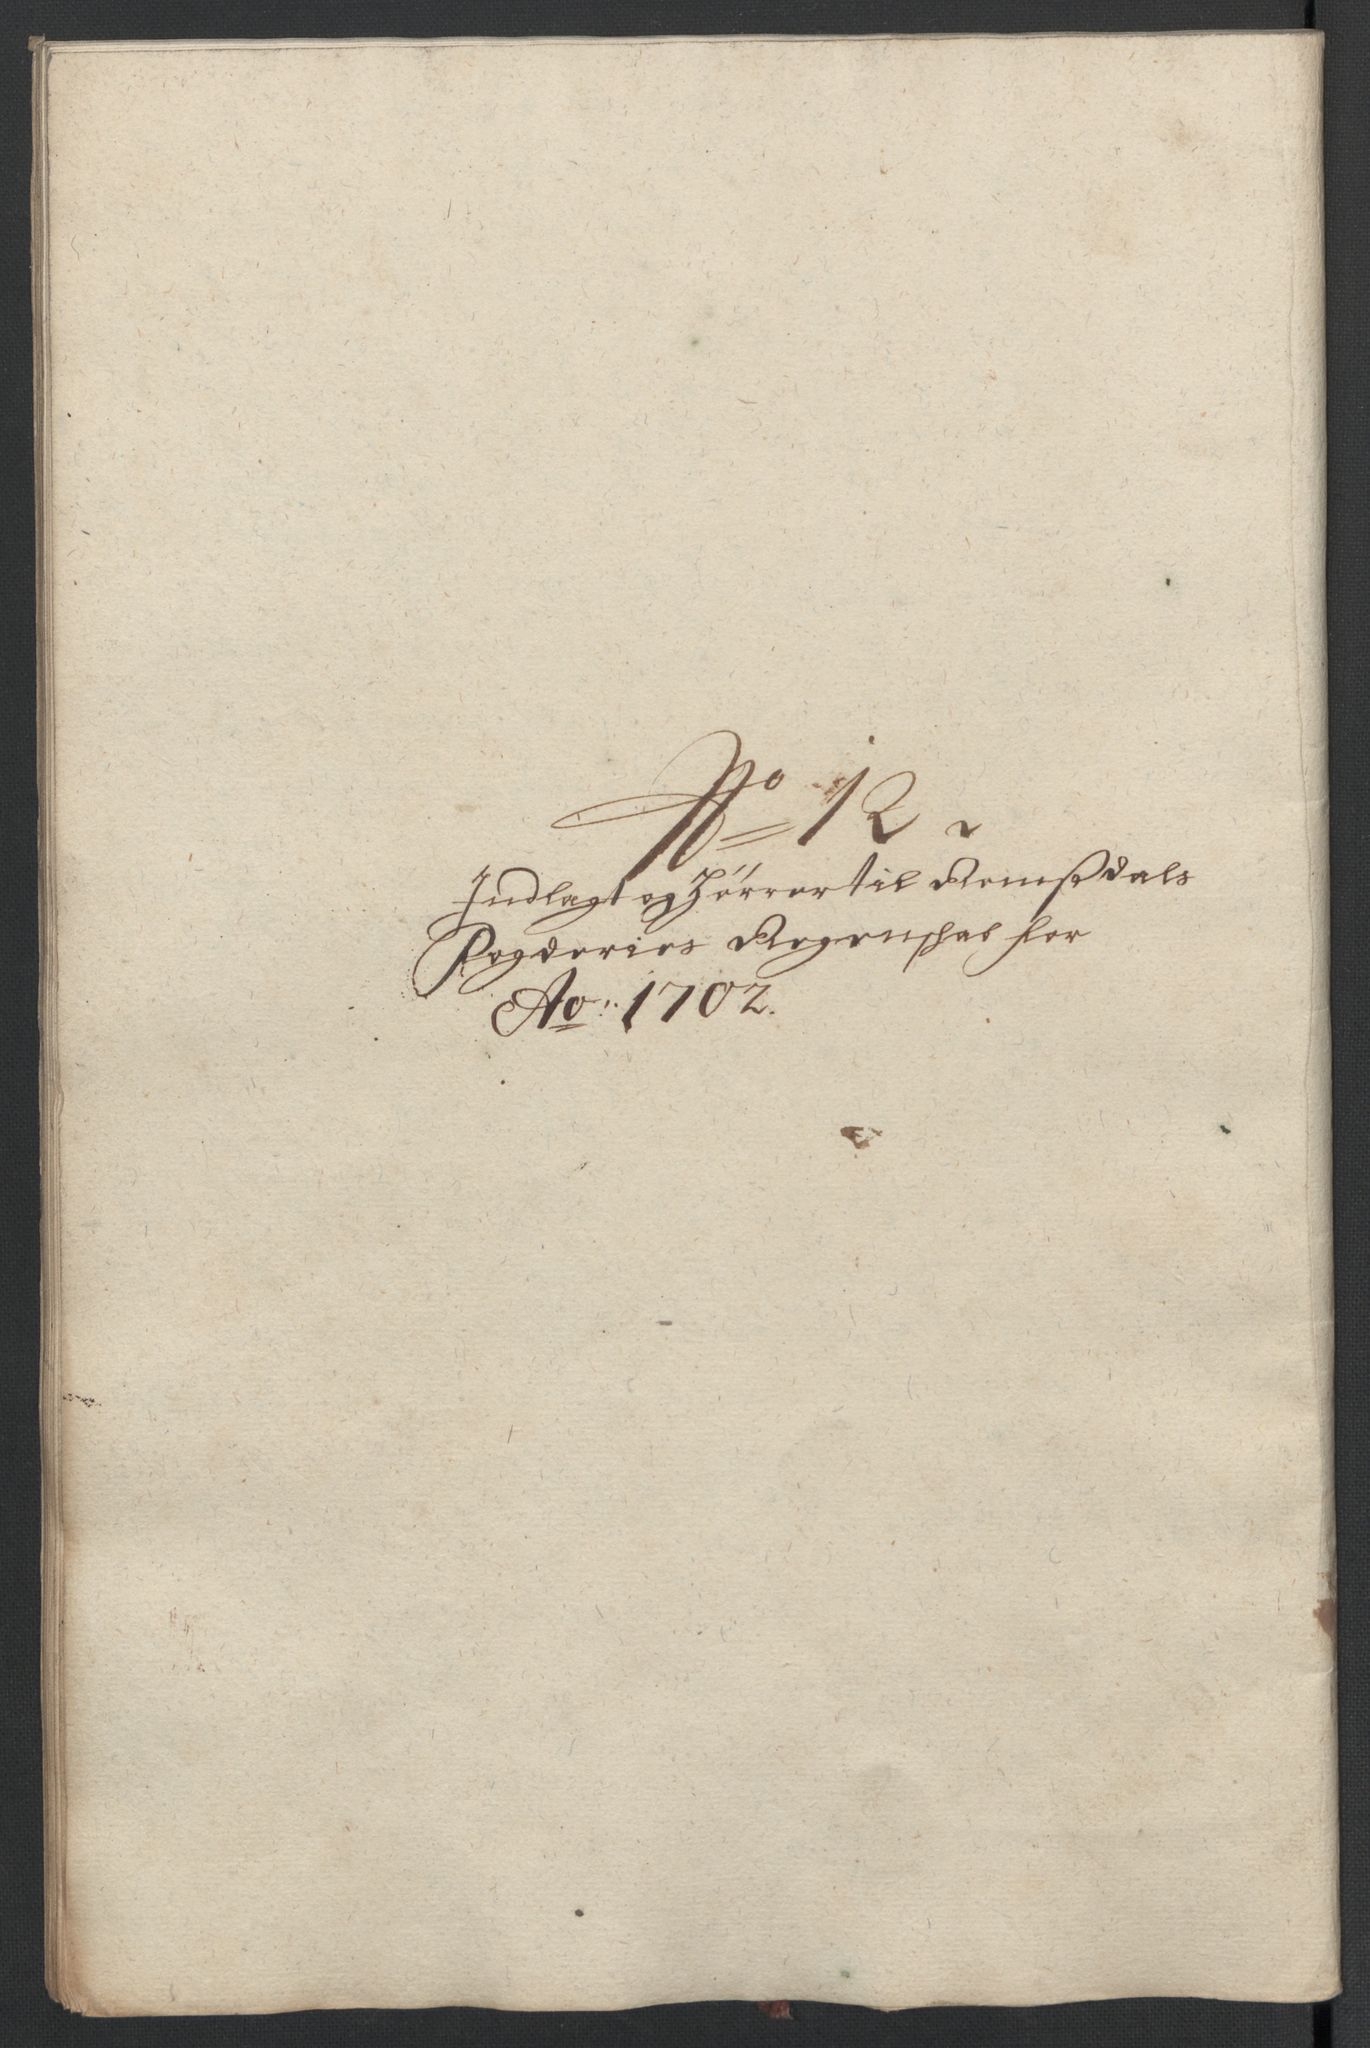 No 12.
Indlagt og hörrer til Romsdals
Fogderies Regenschab for
Ao: 1702.